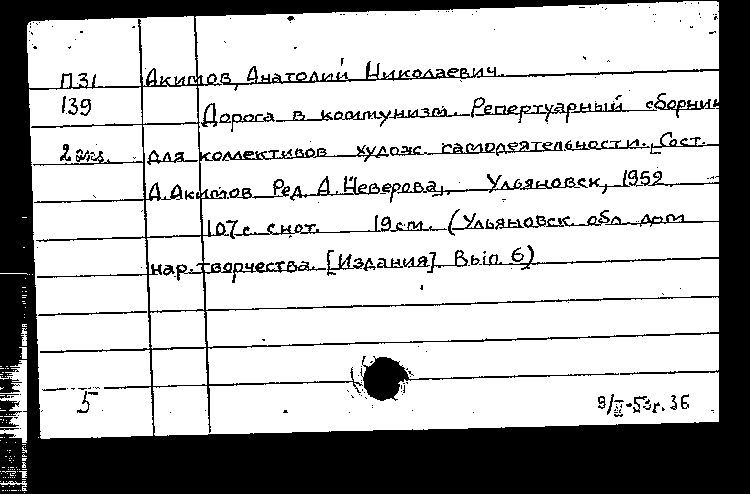 П31 Акимов, Анатолий Николаевич.
139 Дорога в коммунизм. Репертуарный сборник
2 экз. для коллективов худож. самодеятельности. [Сост.
А. Акимов Ред. А. Неверова], Ульяновск, 1952
107 с. с нот. 19 см. (Ульяновск. обл. дом
нар. творчества. [Издания]. Вып. 6)
5 36